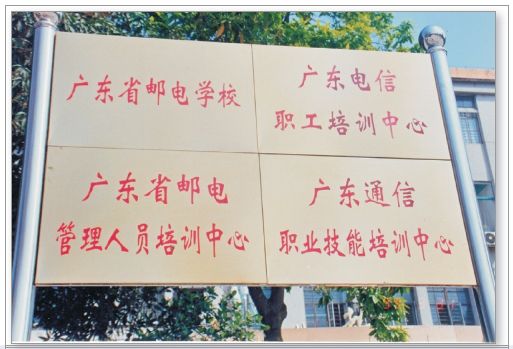 广东省邮电学校
广东电信
职工培训中心
广东省邮电
管理人员培训中心
广东通信
职业技能培训中心